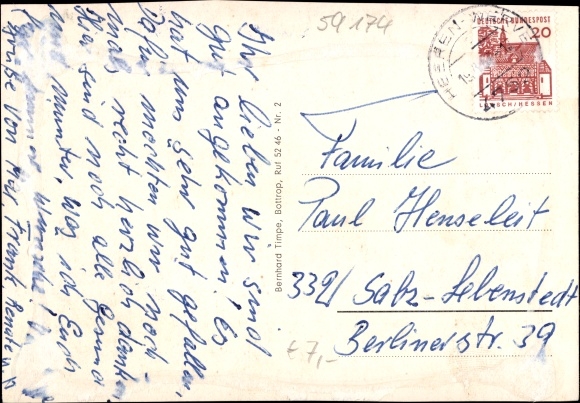 59 174
DEUTSCHE BUNDESPOST
20
LORSCH/HESSEN
Ihr lieben wir sind
gut angekommen, es
hat uns sehr gut gefallen,
Dafür möchten wir noch
mal, recht herzlich danken
Hier sind noch alle gesund
und munter, was ich Euch
auch immer wünsche.
Grüße von Frank, Renate u.
Bernhard Timpe, Bottrop, Ruf 52 46 - Nr. 2
Familie
Paul Henseleit
3321 Salz-Lebenstedt
Berlinerstr. 39
€ 7,-